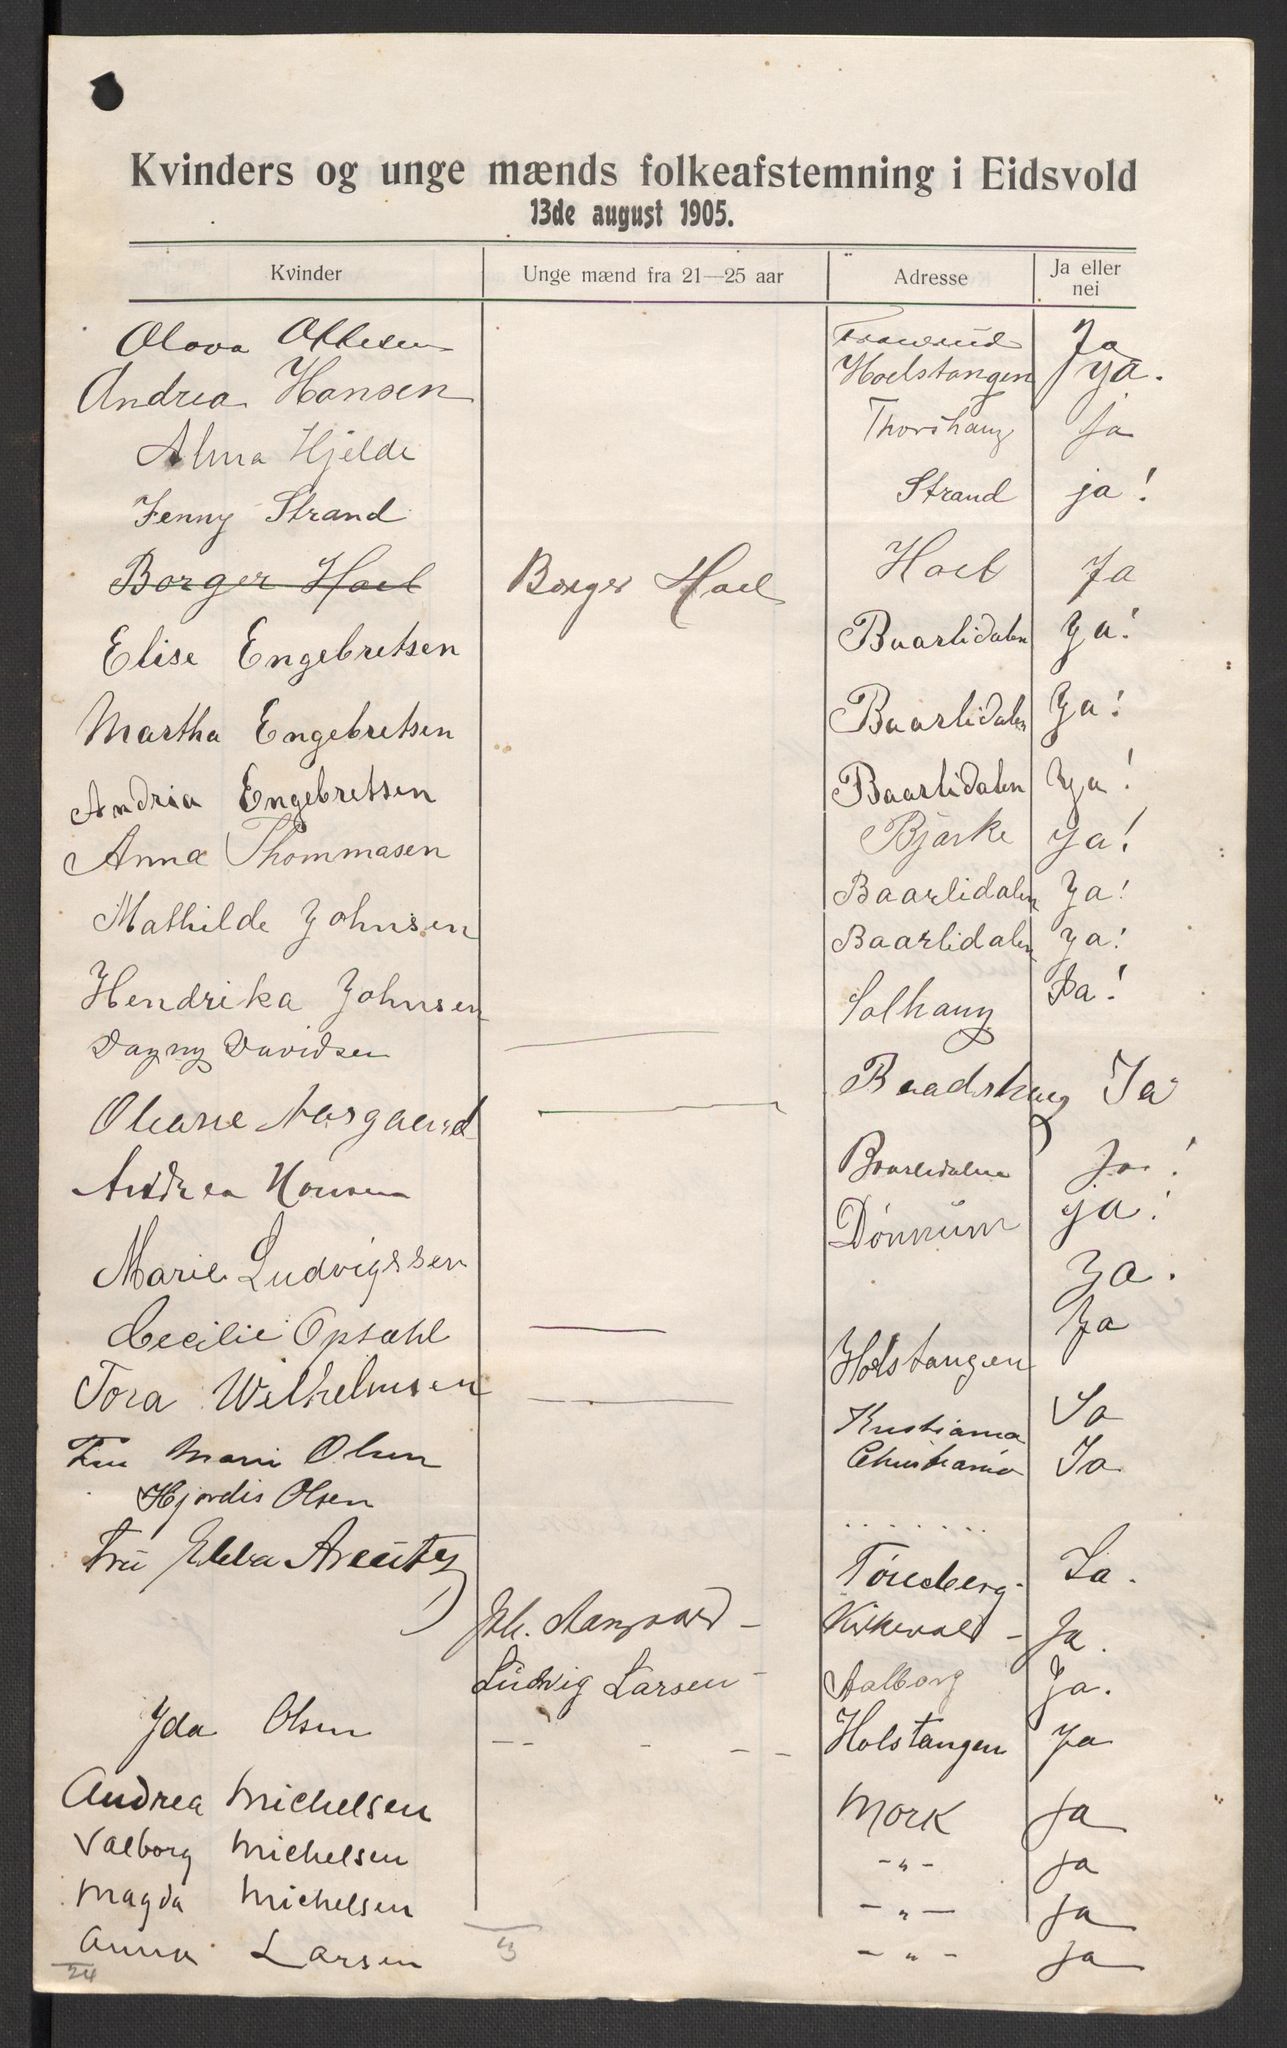 Kvinders og unge mænds folkeafstemning i Eidsvold
13de august 1905.
Kvinder Unge mænd fra 21—25 aar Adresse Ja eller nei
Olava Ottesen Ja
Andrea Hansen Hoelstangen Ja.
Alma Hjelde Thorshaug Ja
Jenny Strand Strand ja!
Borger Hoel Borger Hoel Hoel Ja
Elise Engebretsen Baarlidalen Ja!
Martha Engebretsen Baarlidalen Ja!
Andrea Engebretsen Baarlidalen Ja!
Anna Thommasen Bjørke Ja!
Mathilde Johnsen Baarlidalen Ja!
Hendrika Johnsen Baarlidalen Ja!
Dagny Davidsen Solhaug Ja!
Oleane Aasgaard Baadshaug Ja
Andrea Hansen Baarlidalen Ja!
Marie Ludvigssen Dønnum Ja!
Ja.
Cecilie Opsahl Ja
Tora Wilhelmsen Holstangen
Fru Marie Olsen Kristiania Ja
Hjordis Olsen Christiania Ja
Fru Ebba Arentz Tønsberg Ja.
Joh. Aangaard – Kirkevold – Ja.
Ludvig Larsen – Aalborg Ja.
Yda Olsen – – – – – Holstangen Ja
Andrea Michelsen Mork Ja
Valborg Michelsen –"– Ja
Magda Michelsen –"– Ja
Anna Larsen –"– Ja
24 3